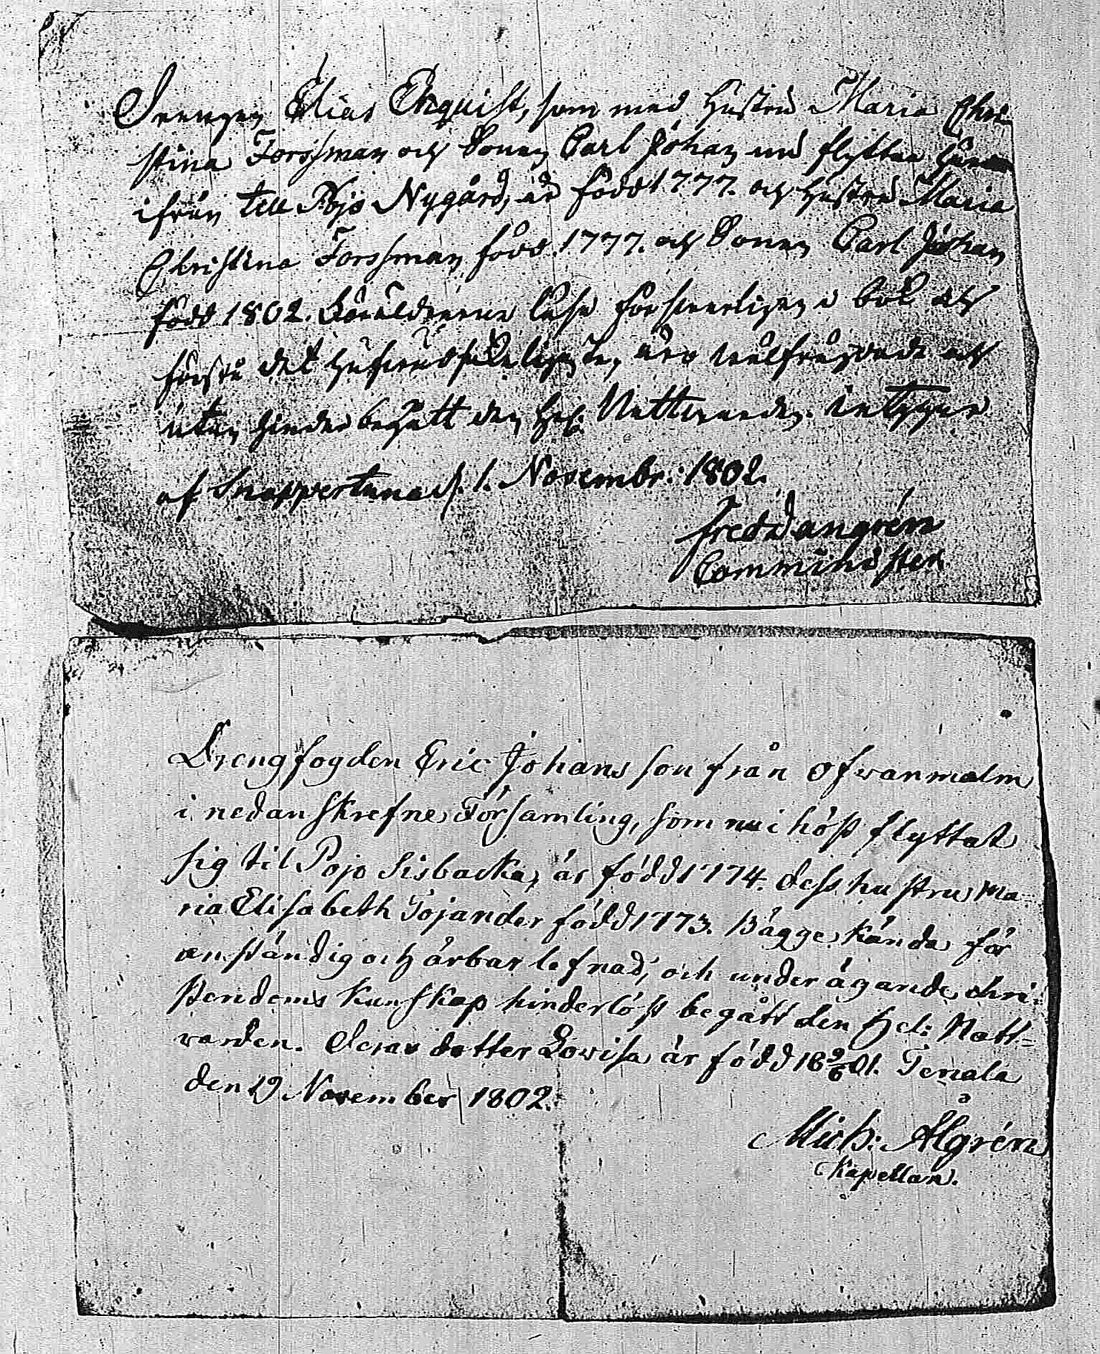 Drengen Elias Enquist, som med Hustru Maria Chri-
stina Forssman och Sonen Carl Johan nu flyttar här
ifrån till Pojo Nygård, är född 1777. och Hustru Maria
Christina Forssman född 1777. och Sonen Carl Johan
född 1802. Föräldrarne läsa försvarligen i bok och
förstå det hufvudsakeligaste, äro välfrägdade och
utan hinder begått den Hel. Nattvarden. intygar
af Snappertuna d. 1. Novembr: 1802.
Fred Wangrén
Comminister
Drengfogden Eric Johans son från Ofvanmalm
i nedanskrefne Församling, som nu i höst flyttat
sig til Pojo Sisbacka, är född 1774. dess hustru Ma-
ria Elisabeth Göjander född 1773. Bägge kända för
anständig och ärbar lefnad, och under ägande chri-
stendoms kunskap hinderlöst begått den Hel: Natt=
varden. Deras dotter Lovisa är född 18 9/6 01. Tenala
den 19 November 1802.
Mich: Ålgrén
Kapellan.